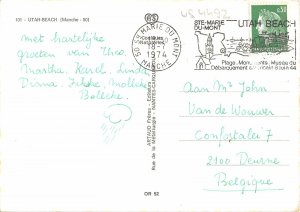 101 - UTAH-BEACH (Manche - 50)
met hartelijke
groeten van Theo
Martha, Karel, Linda
Diana, Hilde,
Bolleke.
ARTAUD Frères - Editeurs
Rue de la Métallurgie - NANTES
OR 52
45 4492
50 STE MARIE DU MONT
1974
MANCHE
STE-MARIE
DU-MONT
UTAH BEACH
Plage, Monuments, Musée du
Débarquement
0,50
Aan Mr John
Van de Wouwer
Confortalei 7
2100 Deurne
Belgique